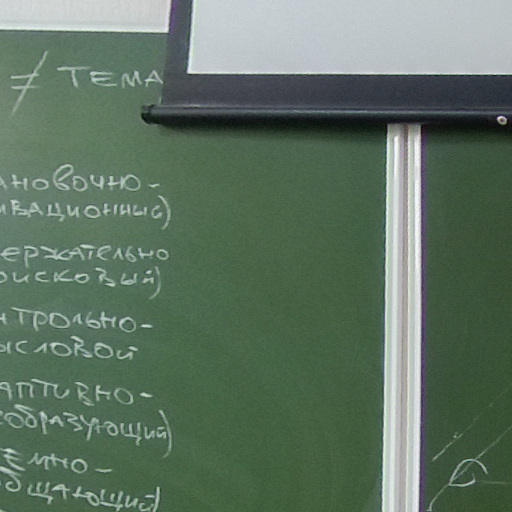 ≠ ТЕМА
АНОВОЧНО-
ИВАЦИОННЫЙ)
ЕРЖАТЕЛЬНО
ОИСКОВЫЙ)
НТРОЛЬНО-
ЫСЛОВОЙ
АПТИВНО-
ЕОБРАЗУЮЩИЙ)
ЕМНО-
ОБЩАЮЩИЙ)